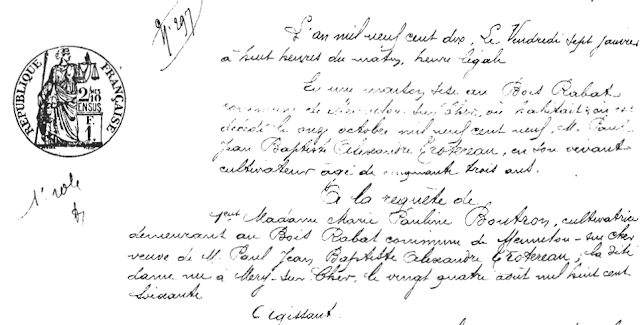 N° 297
L'an mil neuf cent dix, Le Vendredi sept janvier
à huit heures du matin, heure légale
En une maison sise au Bois Rabat
commune de Mennetou-sur-Cher, où habitait et est
décédé le onze octobre mil neuf cent neuf, M. Paul
Jean Baptiste Alexandre Crotereau, en son vivant
cultivateur âgé de cinquante trois ans.
A la requête de
1ent Madame Marie Pauline Boutron, cultivatrice
demeurant au Bois Rabat commune de Mennetou-sur-Cher
veuve de M. Paul Jean Baptiste Alexandre Crotereau, la dite
dame née à Méry-sur-Cher, le vingt quatre août mil huit cent
soixante
Agissant
RÉPUBLIQUE FRANÇAISE
2/10es
EN SUS
F.
1.
1er role